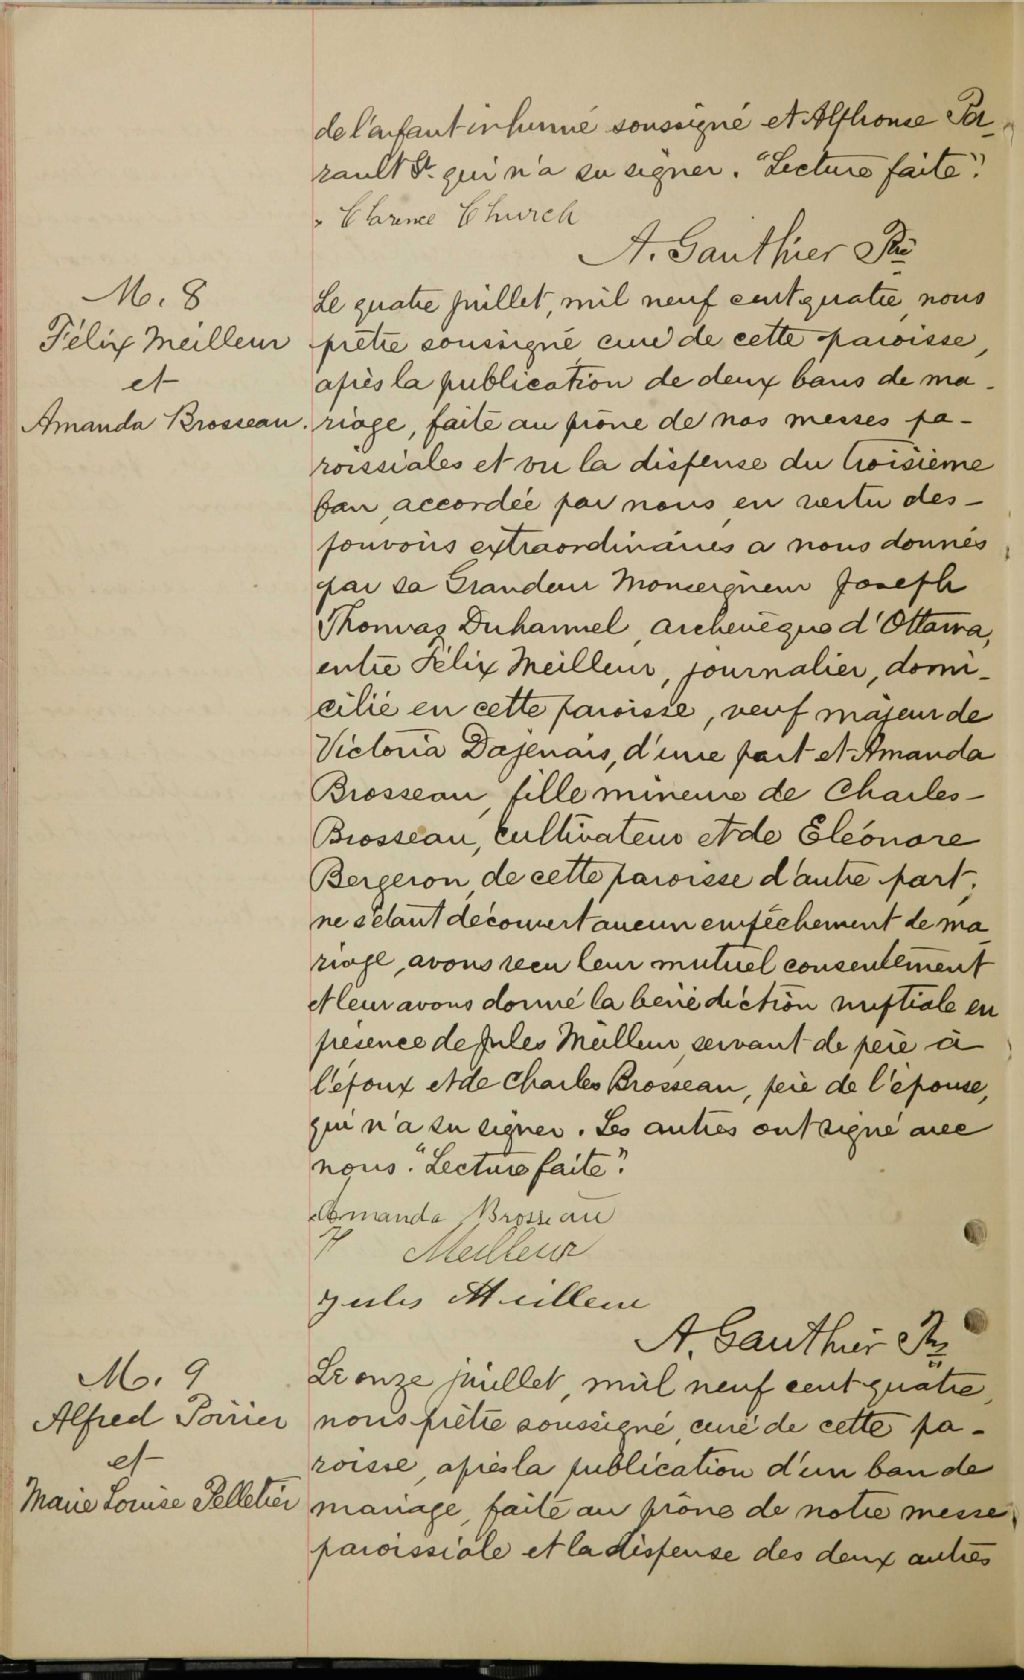 de l'enfant inhumé soussigné et Alphonse Per-
rault St. qui n'a su signer. "Lecture faite".
Clarence Church
A. Gauthier Ptre
M. 8
Félix Meilleur
et
Amanda Brosseau.
Le quatre juillet, mil neuf cent quatre, nous
prêtre soussigné, curé de cette paroisse,
après la publication de deux bans de ma-
riage, faite au prône de nos messes pa-
roissiales et vu la dispense du troisième
ban, accordée par nous, en vertu des-
pouvoirs extraordinaires a nous donnés
par sa Grandeur Monseigneur Joseph
Thomas Duhamel, archevêque d'Ottawa,
entre Félix Meilleur, journalier, domi-
cilié en cette paroisse, veuf majeur de
Victoria Dajenais, d'une part et Amanda
Brosseau, fille mineure de Charles-
Brosseau, cultivateur et de Eléonore
Bergeron, de cette paroisse d'autre part;
ne s'étant découvert aucun empêchement de ma-
riage, avons recu leur mutuel consentement
et leur avons donné la bénédiction nuptiale en
présence de Jules Meilleur, servant de père à
l'époux et de Charles Brosseau, père de l'épouse,
qui n'a su signer. Les autres ont signé avec
nous. "Lecture faite".
Amanda Brosseau
F Meilleur
Jules Meilleur
A. Gauthier Ptre
M. 9
Alfred Poirier
et
Marie Louise Pelletier
Le onze juillet, mil neuf cent quatre,
nous prêtre soussigné, curé de cette pa-
roisse, après la publication d'un ban de
mariage, faite au prône de notre messe
paroissiale et la dispense des deux autres